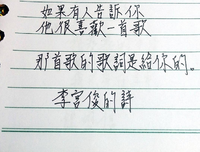 如果有人告訴你
他很喜歡一首歌
那首歌的歌詞是給你的。
李宮俊的詩